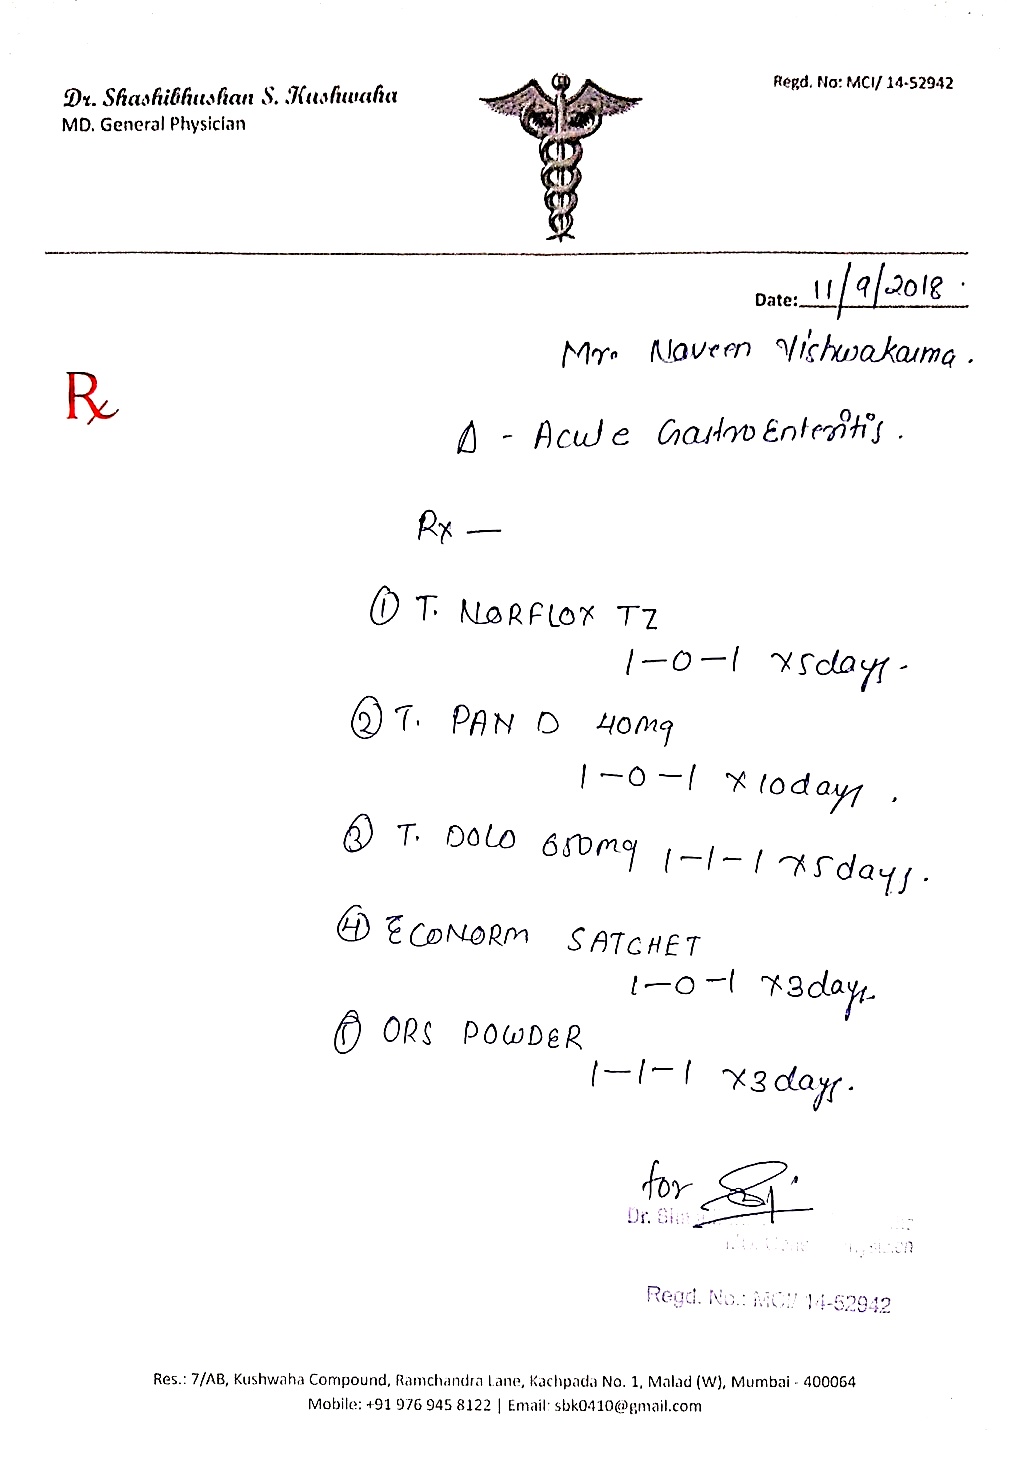 Dr. Shashibhushan S. Kushwaha
MD. General Physician
Regd. No: MCI/ 14-52942
Date: 11/9/2018
Mr. Naveen Vishwakarma.
Rx
Δ - Acute GastroEnteritis.
Rx —
① T. NORFLOX TZ
1-0-1 x5days.
② T. PAN D 40mg
1-0-1 x10days.
③ T. DOLO 650mg 1-1-1 x5days.
④ ECONORM SATCHET
1-0-1 x3days.
⑤ ORS POWDER
1-1-1 x3days.
for
Dr.
Regd. No.: MCI/ 14-52942
Res.: 7/AB, Kushwaha Compound, Ramchandra Lane, Kachpada No. 1, Malad (W), Mumbai - 400064
Mobile: +91 976 945 8122 | Email: sbk0410@gmail.com